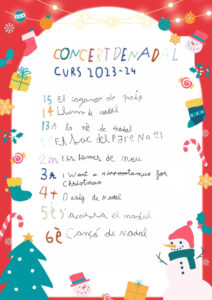 CONCERT DE NADAL
CURS 2023-24
I5 El cagoner de país
I4 Llums de nadal
I3A la nit de nadal
El Sac del PARE NOEL
2n Els homes de neu
3r I Want a Hippopotamus for
Christmas
4t Desig de Nadal
5è S'acosta el nadal
6è Cançó de Nadal